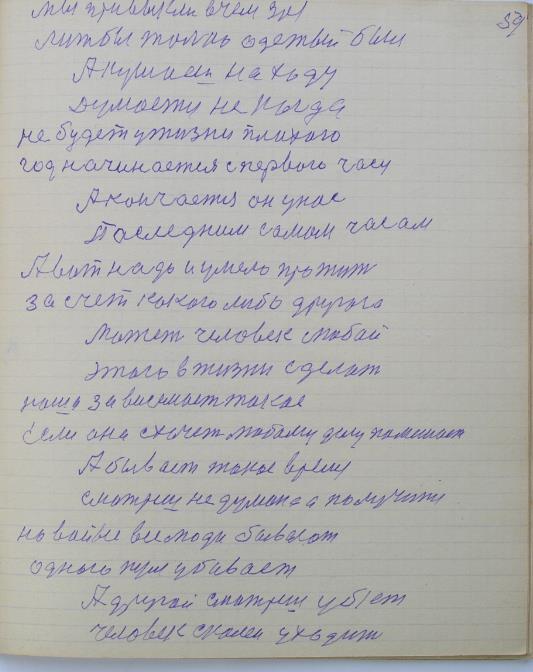 59
мы привыкли в чем зря
лишбы только одетый был
А кушает на ходу
думает никогда
не будет у жизни плохого
год начинается с первого часу
А кончается он у нас
последним самом часам
А вот надо и умело прожит
за счет какого либо другого
может человек любой
этого в жизни сделат
наша зависит такое
если она схочет любому делу помешает
А бывает такое время
смотриш не думано а получит
на войне все люди бывают
одного пуля убивает
А другой смотриш убьет
человек уходит